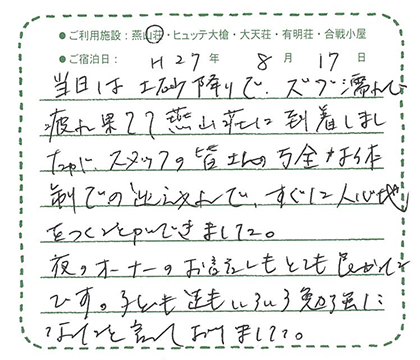 ●ご利用施設：燕山荘・ヒュッテ大槍・大天荘・有明荘・合戦小屋
●ご宿泊日： H27年 8月 17日
当日は土砂降りで、ズブ濡れで
疲れ果てて燕山荘に到着しまし
たが、スタッフの皆さんの万全な体
制での出迎えで、すぐに人心地
をつくことができました。
夜のオーナーのお話もとても良かった
です。子ども達もいろいろ勉強に
なったと言っておりました。